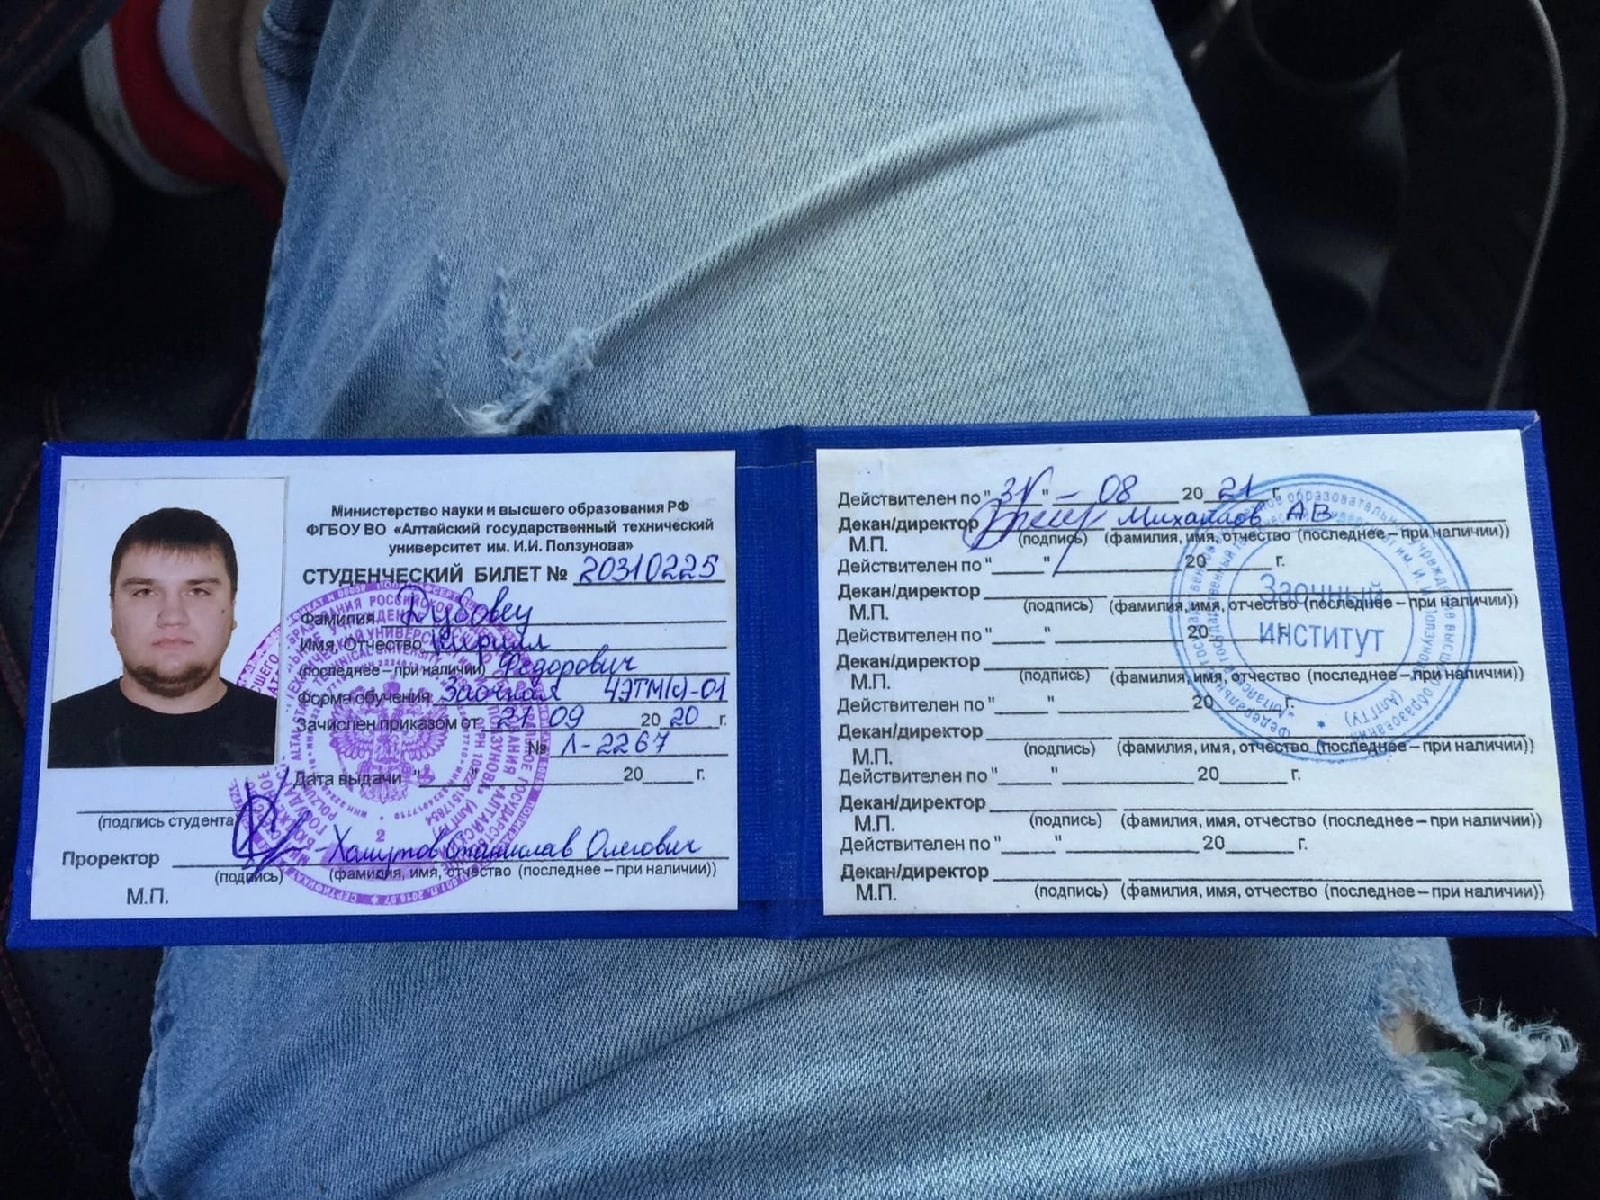 Министерство науки и высшего образования РФ
ФГБОУ ВО «Алтайский государственный технический
университет им. И.И. Ползунова»
СТУДЕНЧЕСКИЙ БИЛЕТ № 20310225
Фамилия Дубовец
Имя, Отчество Кирилл
(последнее – при наличии) Федорович
Форма обучения Заочная 4ЭТМ(с)-01
Зачислен приказом от 21 09 2020 г.
№ Л-2267
Дата выдачи "___" ______ 20____ г.
(подпись студента)
Проректор Станислав Олегович
(подпись) (фамилия, имя, отчество (последнее – при наличии))
М.П.
Действителен по "31" – 08 2021 г.
Декан/директор Михайлов АВ
М.П. (подпись) (фамилия, имя, отчество (последнее – при наличии))
Действителен по "____" ______ 20____ г.
Декан/директор
М.П. (подпись) (фамилия, имя, отчество (последнее – при наличии))
Действителен по "____" ______ 20____ г.
Декан/директор
М.П. (подпись) (фамилия, имя, отчество (последнее – при наличии))
Действителен по "____" ______ 20____ г.
Декан/директор
М.П. (подпись) (фамилия, имя, отчество (последнее – при наличии))
Действителен по "____" ______ 20____ г.
Декан/директор
М.П. (подпись) (фамилия, имя, отчество (последнее – при наличии))
Действителен по "____" ______ 20____ г.
Декан/директор
М.П. (подпись) (фамилия, имя, отчество (последнее – при наличии))
Заочный
институт
(АлтГТУ)